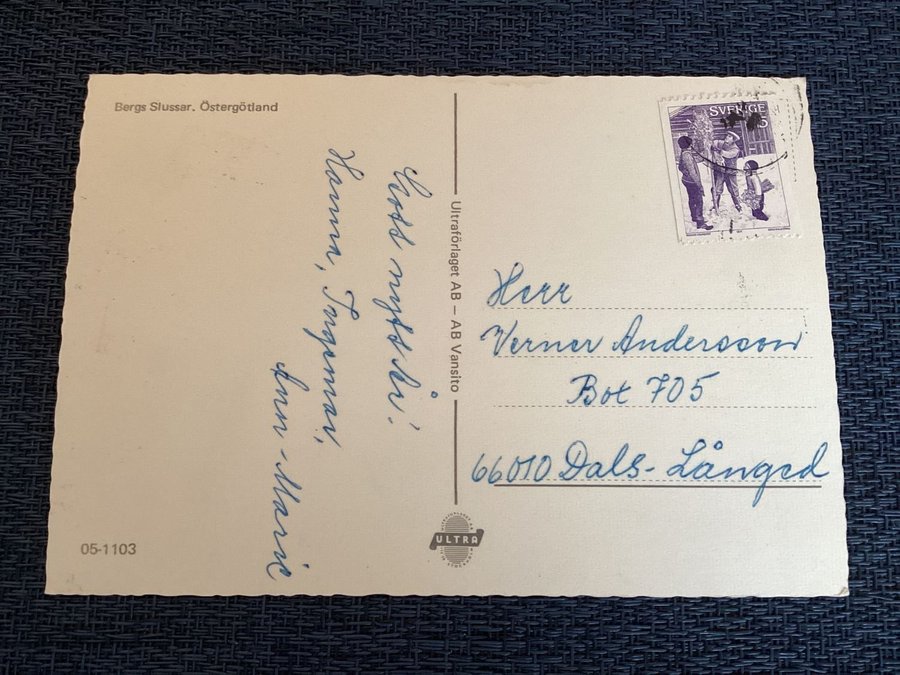 Bergs Slussar. Östergötland
Gott nytt år!
Hanna, Ingemar,
Ann-Marie
Ultraförlaget AB – AB Vansito
SVERIGE
Herr
Verner Andersson
Box 705
66010 Dals-Långed
05-1103
ULTRA